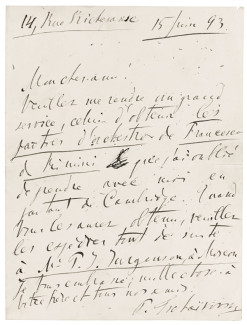 14, Rue Richepanse 15 Juin 93.
Mon cher ami!
Veuillez me rendre un grand
service, celui d'obtenir les
parties d'orchestre de Francesca
di Rimini que j'ai oublié
de prendre avec moi en
partant de Cambridge. Quand
vous les aurez obtenu, veuillez
les expédier tout de suite
à Mr P. J. Jurgenson à Moscou
Je vous embrasse; mille choses à
votre père et tous nos amis.
P. Tschaïkovsky